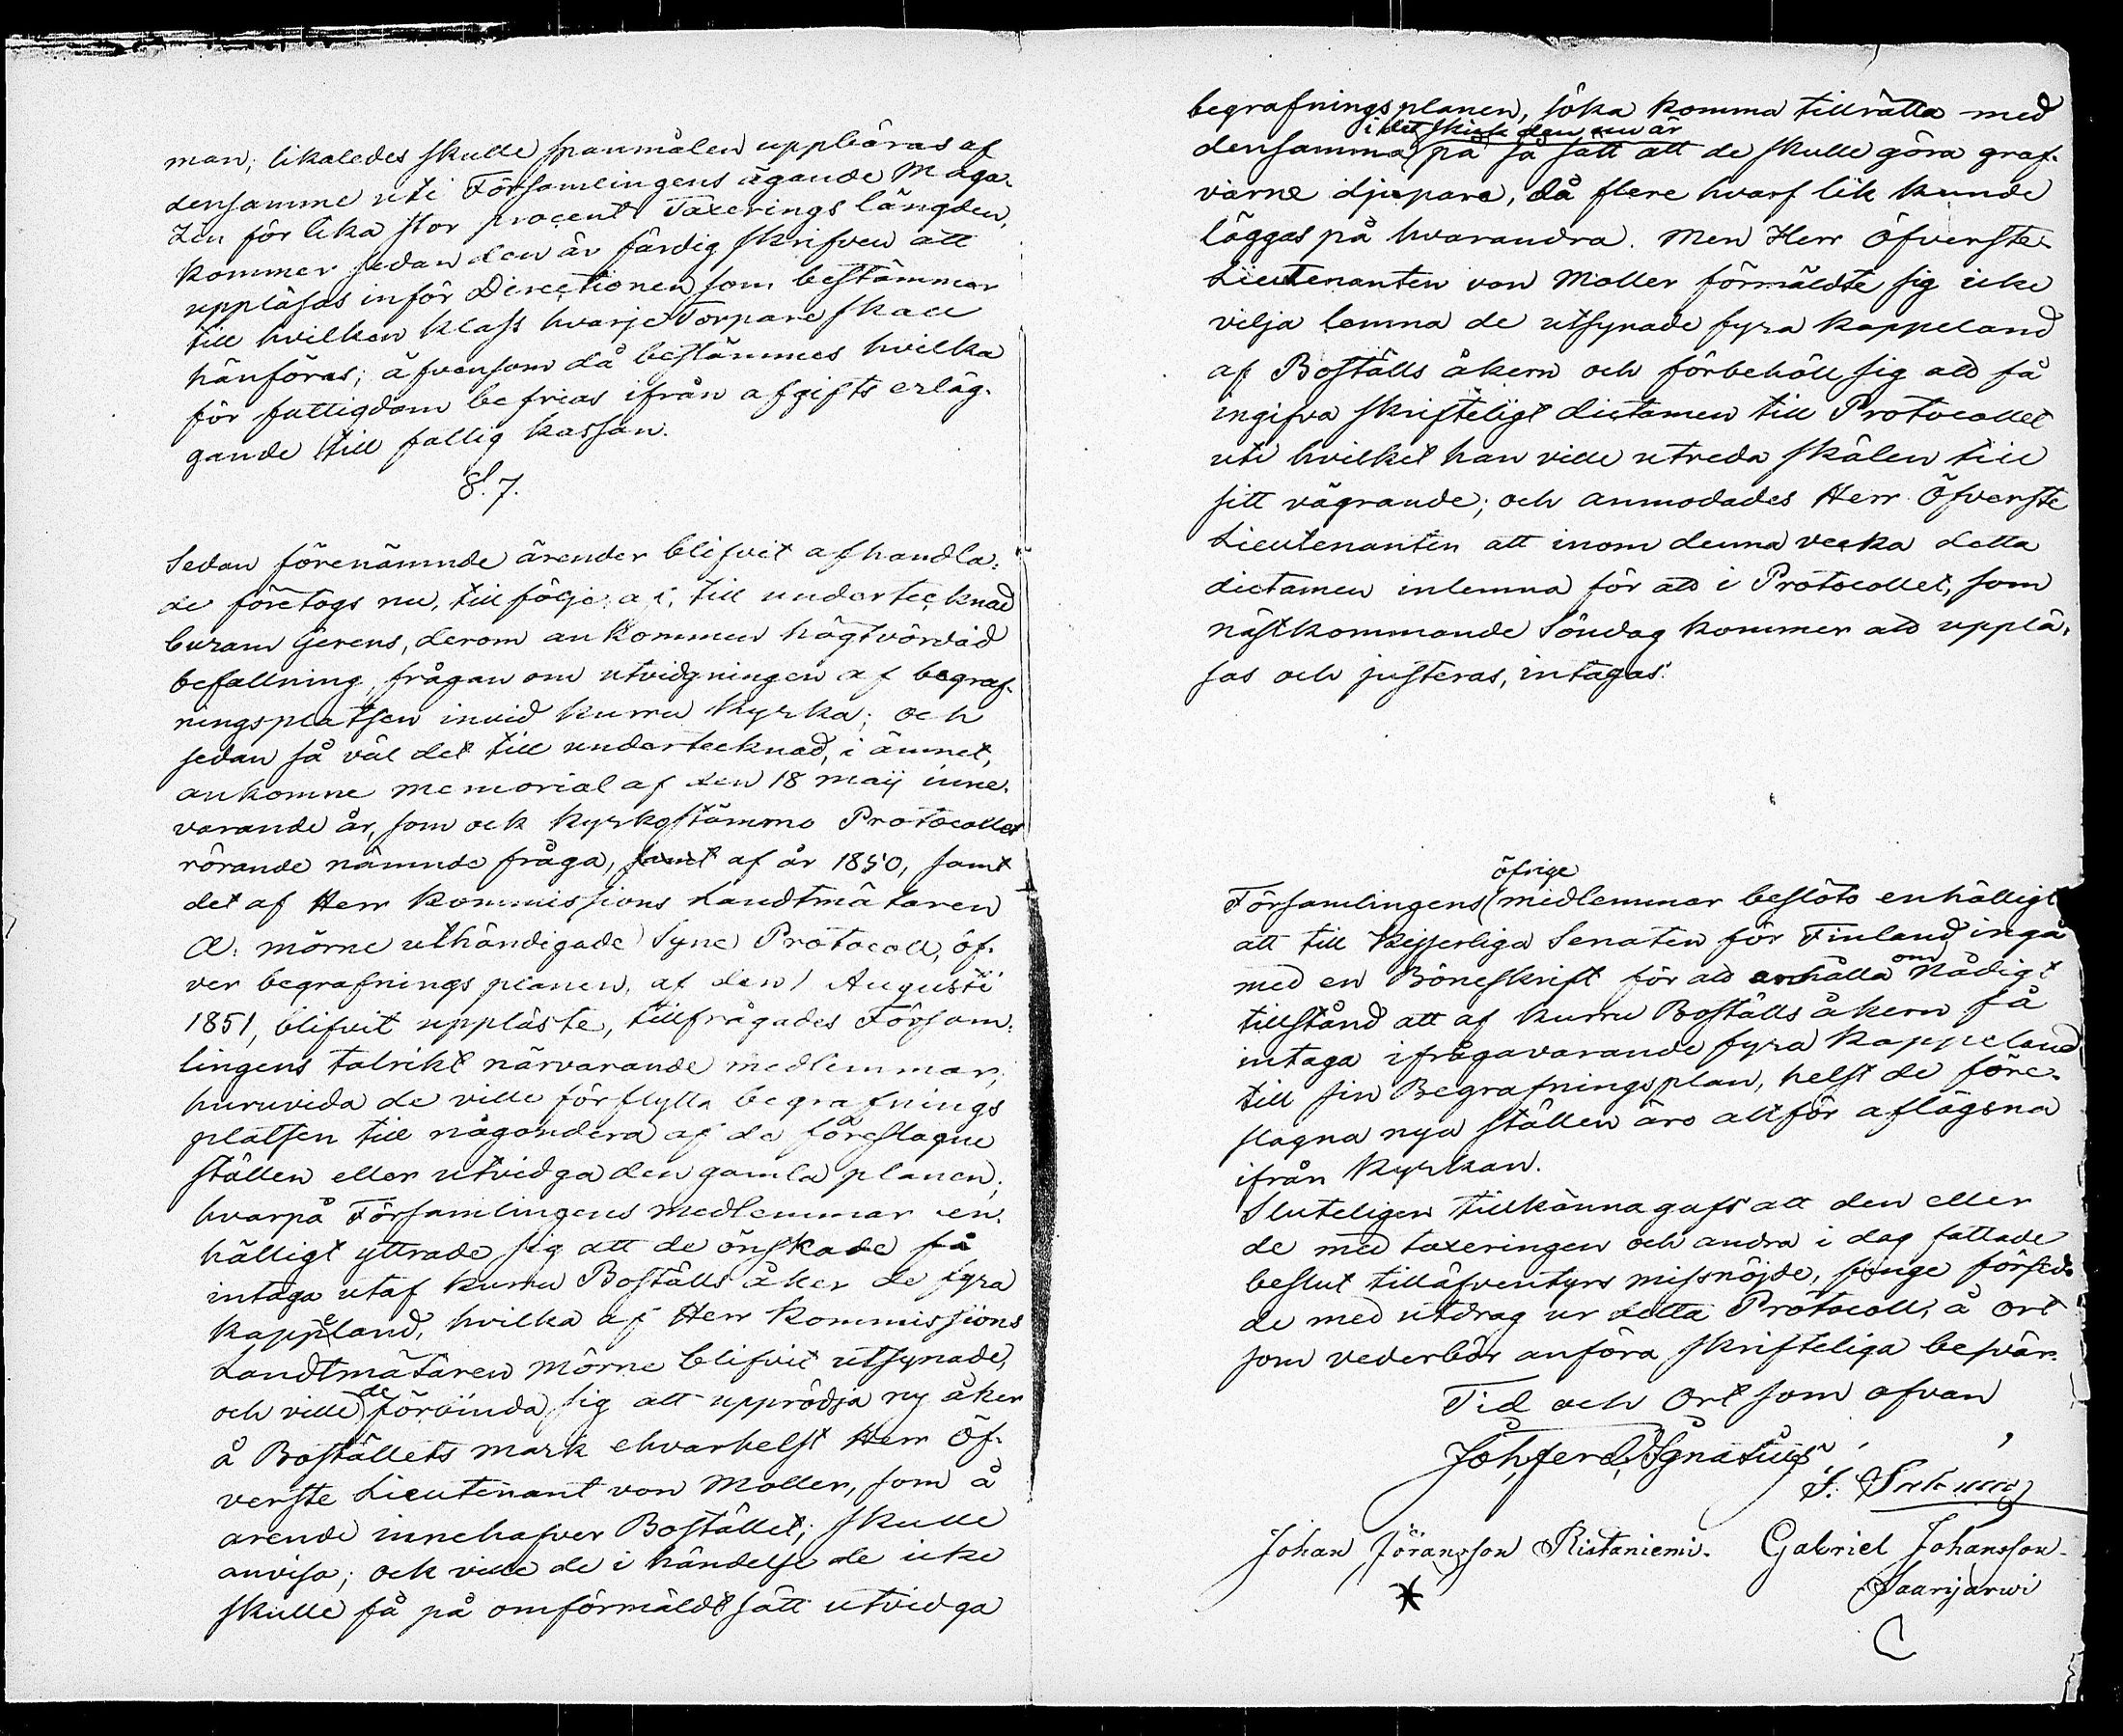 man; likaledes skulle spanmålen uppbäras af
densamme uti Församlingens ägande Maga-
zin för lika stor procent. Taxerings längden,
kommer sedan den är färdig skrifven att
uppläsas inför Directionen som bestämmer
till hvilken klass hvarje Torpare skall
hänföras; äfvensom då bestämmes hvilka
för fattigdom befrias ifrån afgifts erläg-
gande till fattig kassan.
§. 7.
Sedan förenämnde ärender blifvit afhandla-
de företogs nu, till följe af, till undertecknad
Curam Gerens, derom ankommen högtvördad
befallning, frågan om utvidgningen af begraf-
ningsplatsen invid Kurru Kyrka; och
sedan så väl det till undertecknad, i ämnet,
ankomne memorial af den 18 Maij inne-
varande år, som ock Kyrkostämmo Protocollet
rörande nämnde fråga, samt af år 1850, samt
det af Herr Kommissions Landtmätaren
A: Mörne uthändigade Syne Protocoll, öf-
ver begrafnings planen, af den 1 Augusti
1851, blifvit uppläste, tillfrågades Försam-
lingens talrikt närvarande medlemmar,
huruvida de ville förflytta begrafnings
platsen till någondera af de föreslagne
ställen eller utvidga den gamla planen;
hvarpå Församlingens medlemmar en-
hälligt yttrade sig att de önskade få
intaga utaf Kurru Boställs åker de fyra
kappeland, hvilka af Herr Kommissions
Landtmätaren Mörne blifvit utsynade,
och ville de förbinda sig att upprödja ny åker
å Boställets mark ehvarhelst Herr Öf-
verste Lieutenant von Moller, som å
arende innehafver Bostället, skulle
anvisa; ock ville de i händelse de icke
skulle få på omförmäldt sätt utvidga
begrafningsplanen, söka komma tillrätta med
i det skick den nu är
densamma på så sätt att de skulle göra graf-
varne djupare, då flere hvarf lik kunde
läggas på hvarandra. Men Herr Öfverste
Lieutenanten von Moller förmäldte sig icke
vilja lemna de utsynade fyra kappeland
af Boställs åkern och förbehöll sig att få
ingifva skrifteligt dictamen till Protocollet
uti hvilket han ville utreda skälen till
sitt vägrande; och anmodades Herr Öfverste
Lieutenanten att inom denna vecka detta
dictamen inlemna för att i Protocollet, som
nästkommande Söndag kommer att upplä-
sas och justeras, intagas.
öfrige
Församlingens medlemmar beslöto enhälligt
att till Kejserliga Senaten för Finland ingå
med en Böneskrift för att anhålla om Nådigt
tillstånd att af Kurru Boställs åkern få
intaga ifrågavarande fyra kappeland
till sin Begrafningsplan, helst de före-
slagna nya ställen äro alltför aflägsna
ifrån Kyrkan.
Sluteligen tillkännagafs att den eller
de med taxeringen och andra i dag fattade
beslut tilläfventyrs missnöjde, finge försed-
de med utdrag ur detta Protocoll, å ort
som vederbör anföra skrifteliga besvär.
Tid och Ort som ofvan
Joh, Ferd, Ignatius,
Johan Jöransson Ristaniemi. Gabriel Johansson
Saarijarwi